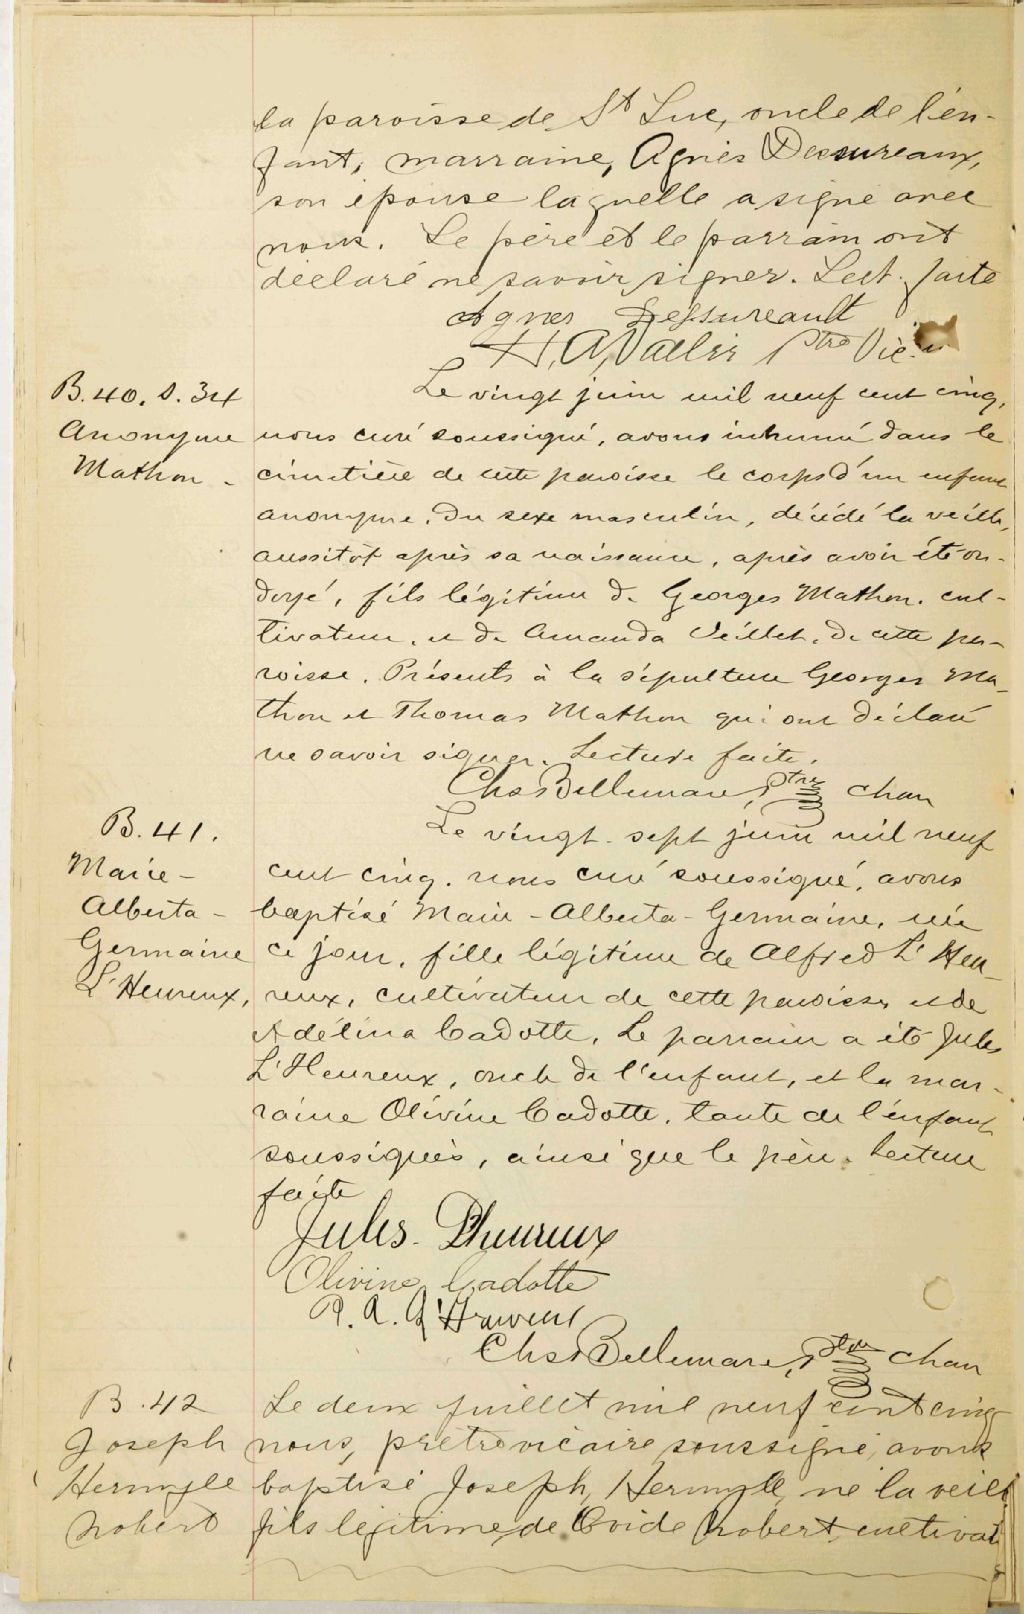 la paroisse de St Luc, oncle de l'en-
fant, marraine, Agnès Dessureaux,
son épouse laquelle a signé avec
nous. Le père et le parrain ont
déclaré ne savoir signer. Lect. faite
Agnes Dessureault
H. A. Ptre Vic.
B. 40. S. 34
Anonyme
Mathon -
Le vingt juin mil neuf cent cinq,
nous curé soussigné, avons inhumé dans le
cimetière de cette paroisse le corps d'un enfant
anonyme, du sexe masculin, décédé la veille,
aussitôt après sa naissance, après avoir été on-
doyé, fils légitime de Georges Mathon, cul-
tivateur, et de Amanda Veillet, de cette pa-
roisse. Présents à la sépulture Georges Ma-
thon et Thomas Mathon qui ont déclaré
ne savoir signer. Lecture faite.
Chs Bellemare, Ptre chan
B. 41.
Marie -
Alberta -
Germaine
L'Heureux,
Le vingt-sept juin mil neuf
cent cinq, nous curé soussigné, avons
baptisé Marie-Alberta-Germaine, née
ce jour, fille légitime de Alfred L'Heu-
reux, cultivateur de cette paroisse, et de
Adélina Cadotte. Le parrain a été Jules
L'Heureux, oncle de l'enfant, et la mar-
raine Olivine Cadotte, tante de l'enfant
soussignés, ainsi que le père. Lecture
faite
Jules Lheureux
Olivine Cadotte
Chs Bellemare, Ptre chan
B. 42
Joseph
Hermyle
Trobert
Le deux juillet mil neuf cent cinq
nous, prêtre vicaire soussigné, avons
baptisé Joseph, Hermylle, né la veille
fils légitime, de Ovide Trobert, cultivat